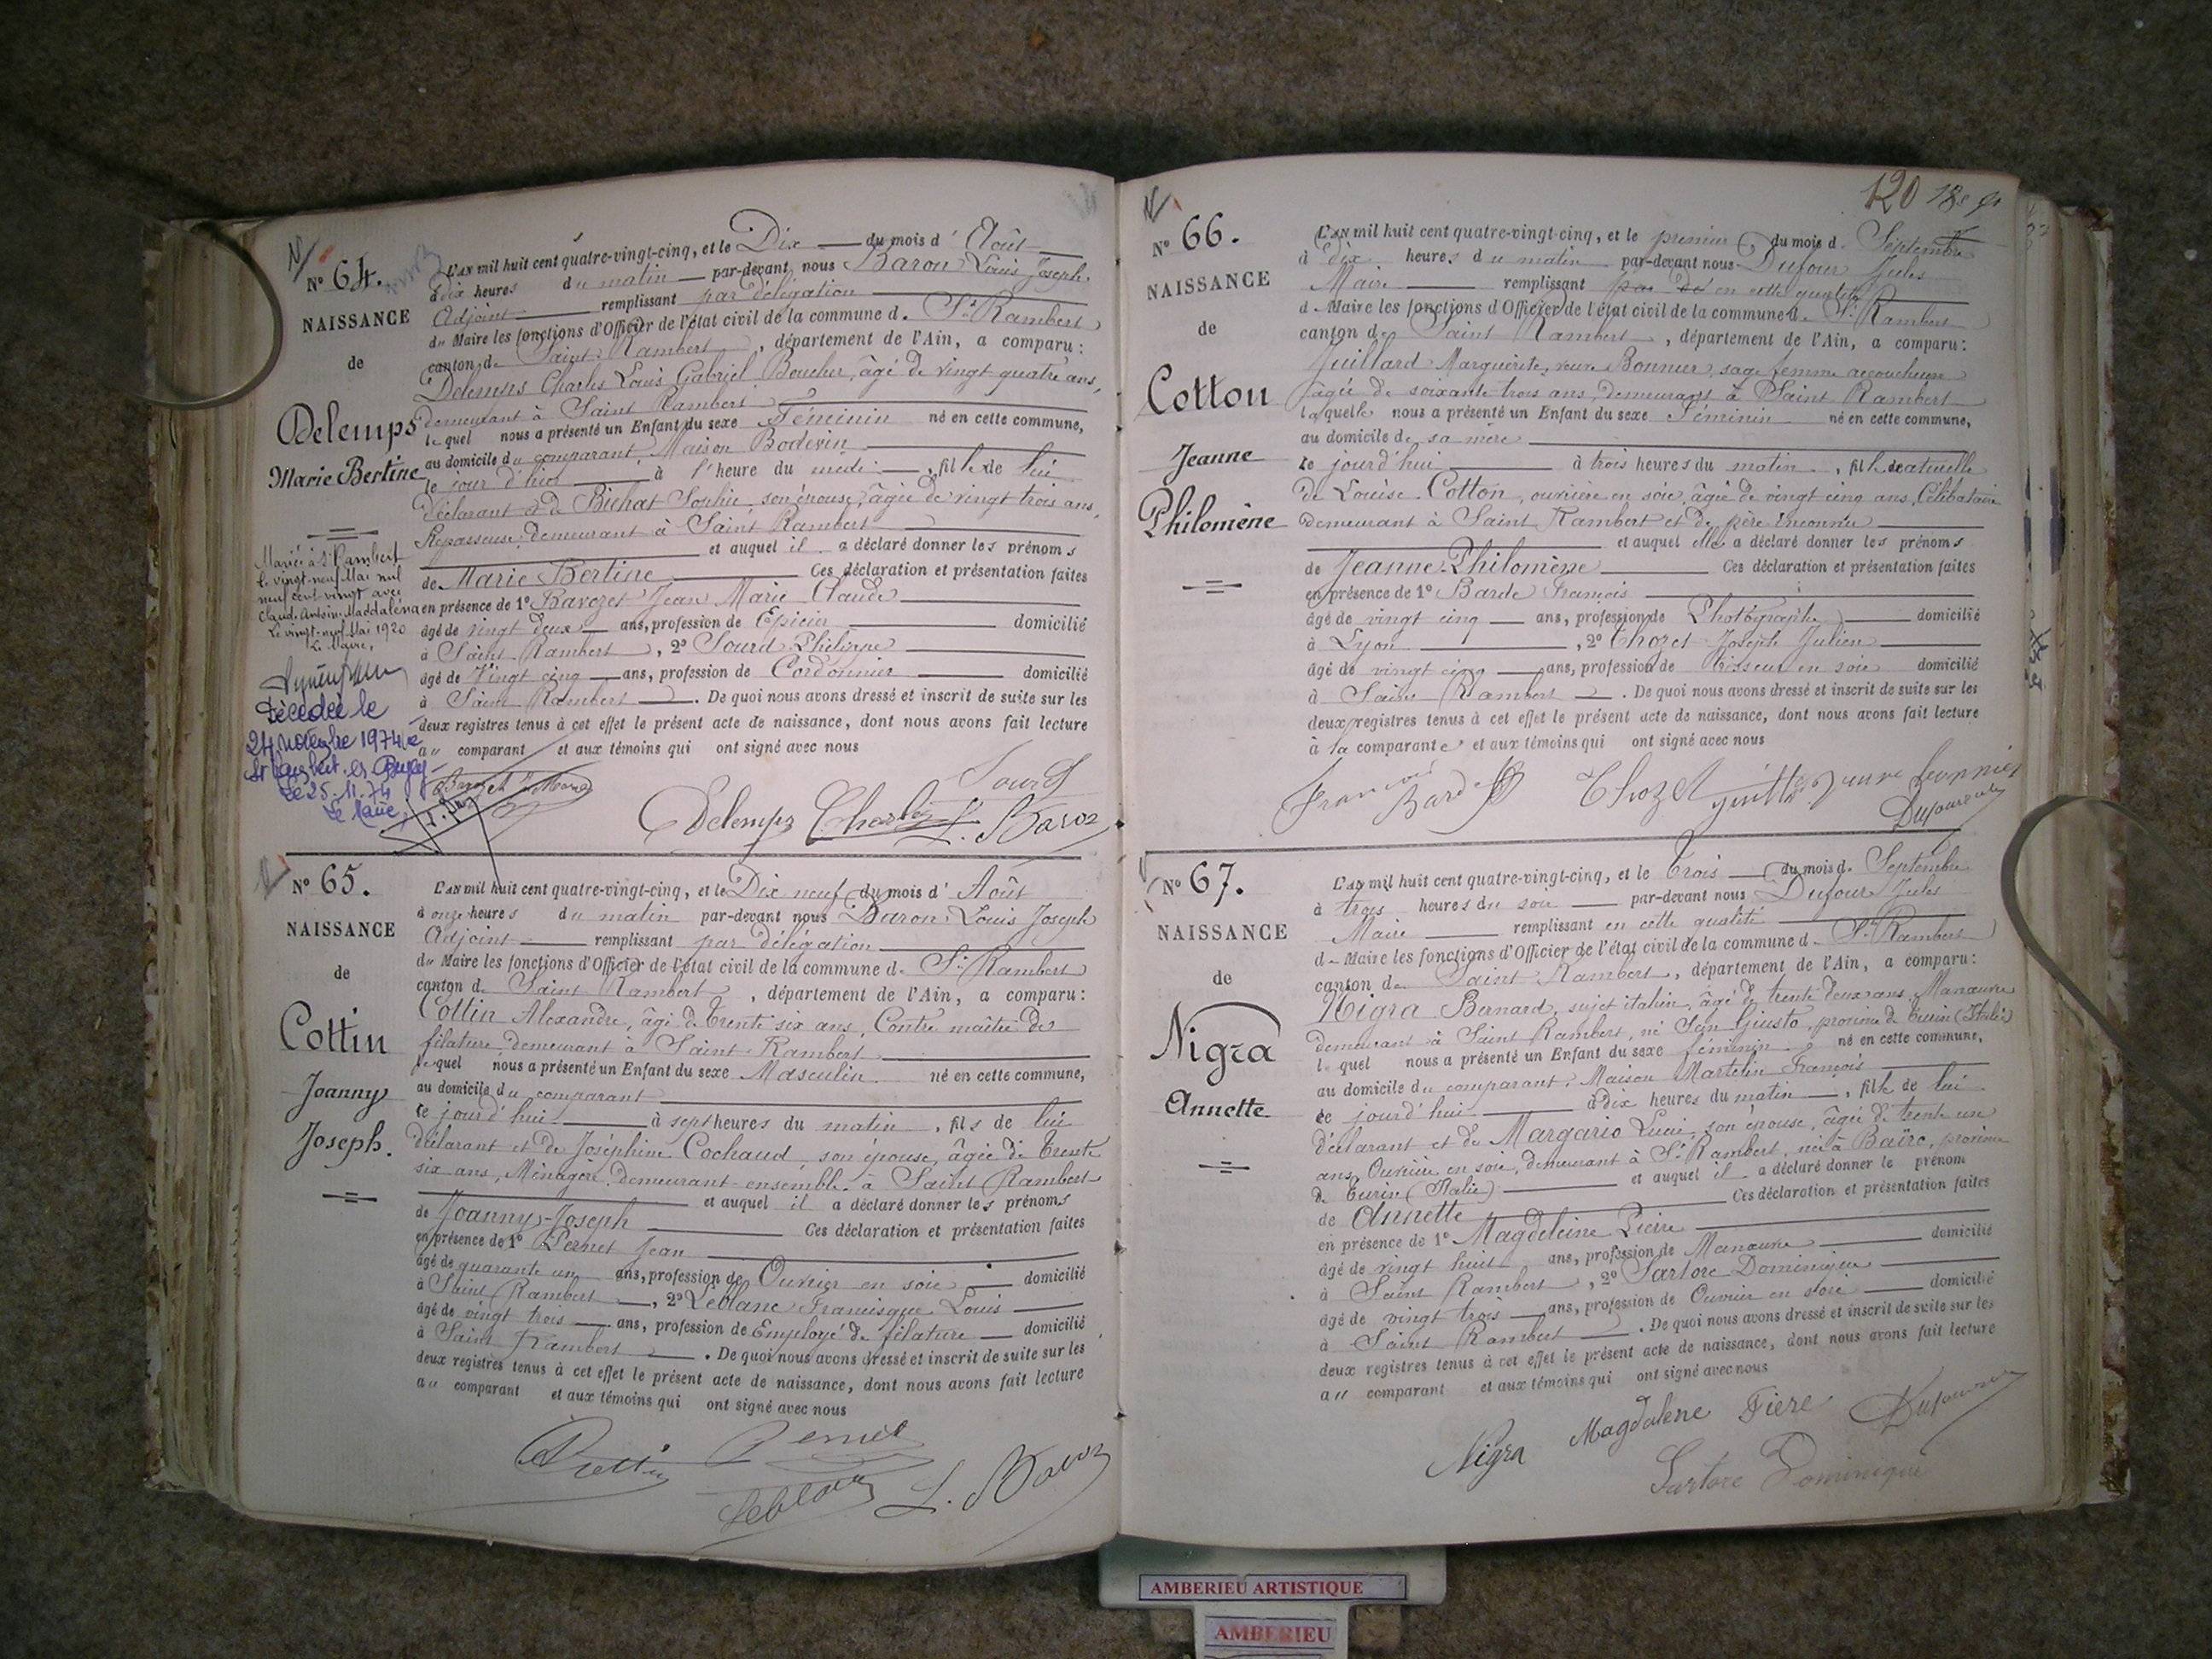 N° 64.
NAISSANCE
de
Delemps
Marie Bertine
Mariée à St Rambert
le vingt-neuf Mai mil
neuf cent vingt avec
Claude Antoine Maddaléna
Le vingt-neuf Mai 1920
Le Maire,
Décédée le
24 novembre 1974 à
St Rambert en Bugey
Le 25.11.74
Le Maire,
L'AN mil huit cent quatre-vingt-cinq, et le Dix du mois d' Août
à dix heures du matin par-devant nous Baron Louis Joseph
Adjoint remplissant par délégation
du Maire les fonctions d'Officier de l'état civil de la commune de St Rambert
canton de Saint Rambert, département de l'Ain, a comparu:
Delemps Charles Louis Gabriel, Boucher, âgé de vingt quatre ans,
demeurant à Saint Rambert
lequel nous a présenté un Enfant du sexe Féminin né en cette commune,
au domicile du comparant Maison Bodevin
le jour d'hier à l'heure du midi, fille de lui
déclarant et de Bichat Sophie son épouse, âgée de vingt trois ans,
Repasseuse, demeurant à Saint Rambert
et auquel il a déclaré donner les prénoms
de Marie Bertine Ces déclaration et présentation faites
en présence de 1° Bavozet Jean Marie Claude
âgé de vingt deux ans, profession de Epicier domicilié
à Saint Rambert, 2° Sourd Philippe
âgé de Vingt cinq ans, profession de Cordonnier domicilié
à Saint Rambert. De quoi nous avons dressé et inscrit de suite sur les
deux registres tenus à cet effet le présent acte de naissance, dont nous avons fait lecture
au comparant et aux témoins qui ont signé avec nous
Sourd
Delemps Charles L. Baron
N° 65.
NAISSANCE
de
Cottin
Joanny
Joseph.
L'AN mil huit cent quatre-vingt-cinq, et le Dix neuf du mois d' Août
à onze heures du matin par-devant nous Baron Louis Joseph
Adjoint remplissant par délégation
du Maire les fonctions d'Officier de l'état civil de la commune de St Rambert
canton de Saint Rambert, département de l'Ain, a comparu:
Cottin Alexandre, âgé de Trente six ans, Contre maître de
filature demeurant à Saint Rambert
lequel nous a présenté un Enfant du sexe Masculin né en cette commune,
au domicile du comparant
ce jourd'hui à sept heures du matin, fils de lui
déclarant et de Joséphine Cochaud, son épouse, âgée de Trente
six ans, Ménagère, demeurant ensemble à Saint Rambert
et auquel il a déclaré donner les prénoms
de Joanny-Joseph Ces déclaration et présentation faites
en présence de 1° Pernet Jean
âgé de quarante un ans, profession de Ouvrier en soie domicilié
à Saint Rambert, 2° Leblanc Francisque Louis
âgé de vingt trois ans, profession de Employé de filature domicilié
à Saint Rambert. De quoi nous avons dressé et inscrit de suite sur les
deux registres tenus à cet effet le présent acte de naissance, dont nous avons fait lecture
au comparant et aux témoins qui ont signé avec nous
Cottin Pernet
Leblanc L. Baron
120
N° 66.
NAISSANCE
de
Cotton
Jeanne
Philomène
L'AN mil huit cent quatre-vingt-cinq, et le premier du mois de Septembre
à dix heures du matin par-devant nous Dufour Jules
Maire remplissant en cette qualité
de Maire les fonctions d'Officier de l'état civil de la commune de St Rambert
canton de Saint Rambert, département de l'Ain, a comparu:
Juillard Marguerite, veuve Bonnier, sage femme accoucheuse
âgée de soixante trois ans, demeurant à Saint Rambert
laquelle nous a présenté un Enfant du sexe Féminin né en cette commune,
au domicile de sa mère
ce jourd'hui à trois heures du matin, fille naturelle
de Louise Cotton, ouvrière en soie, âgée de vingt cinq ans, Célibataire
demeurant à Saint Rambert et de père inconnu
et auquel elle a déclaré donner les prénoms
de Jeanne-Philomène Ces déclaration et présentation faites
en présence de 1° Barde François
âgé de vingt cinq ans, profession de Photographe domicilié
à Lyon, 2° Thozet Joseph Julien
âgé de vingt cinq ans, profession de Tisseur en soie domicilié
à Saint Rambert. De quoi nous avons dressé et inscrit de suite sur les
deux registres tenus à cet effet le présent acte de naissance, dont nous avons fait lecture
à la comparante et aux témoins qui ont signé avec nous
Thozet
Dufour
N° 67.
NAISSANCE
de
Nigra
Annette
L'AN mil huit cent quatre-vingt-cinq, et le Trois du mois de Septembre
à trois heures du soir par-devant nous Dufour Jules
Maire remplissant en cette qualité
de Maire les fonctions d'Officier de l'état civil de la commune de St Rambert
canton de Saint Rambert, département de l'Ain, a comparu:
Nigra Bernard, sujet italien, âgé de trente deux ans, Manœuvre
demeurant à Saint Rambert, né San Giusto, province de Turin (Italie)
lequel nous a présenté un Enfant du sexe féminin né en cette commune,
au domicile du comparant, Maison Martelin François
ce jourd'hui à dix heures du matin, fille de lui
déclarant et de Margario Lucie, son épouse, âgée de trente un
ans, Ouvrière en soie, demeurant à St Rambert, née à Baïro, province
de Turin (Italie) et auquel il a déclaré donner le prénom
de Annette Ces déclaration et présentation faites
en présence de 1° Magdeleine Pierre
âgé de vingt huit ans, profession de Manœuvre domicilié
à Saint Rambert, 2° Sartore Dominique
âgé de vingt trois ans, profession de Ouvrier en soie domicilié
à Saint Rambert. De quoi nous avons dressé et inscrit de suite sur les
deux registres tenus à cet effet le présent acte de naissance, dont nous avons fait lecture
au comparant et aux témoins qui ont signé avec nous
Nigra Magdalene Piere Dufour
Sartore Dominique
AMBERIEU ARTISTIQUE
AMBERIEU